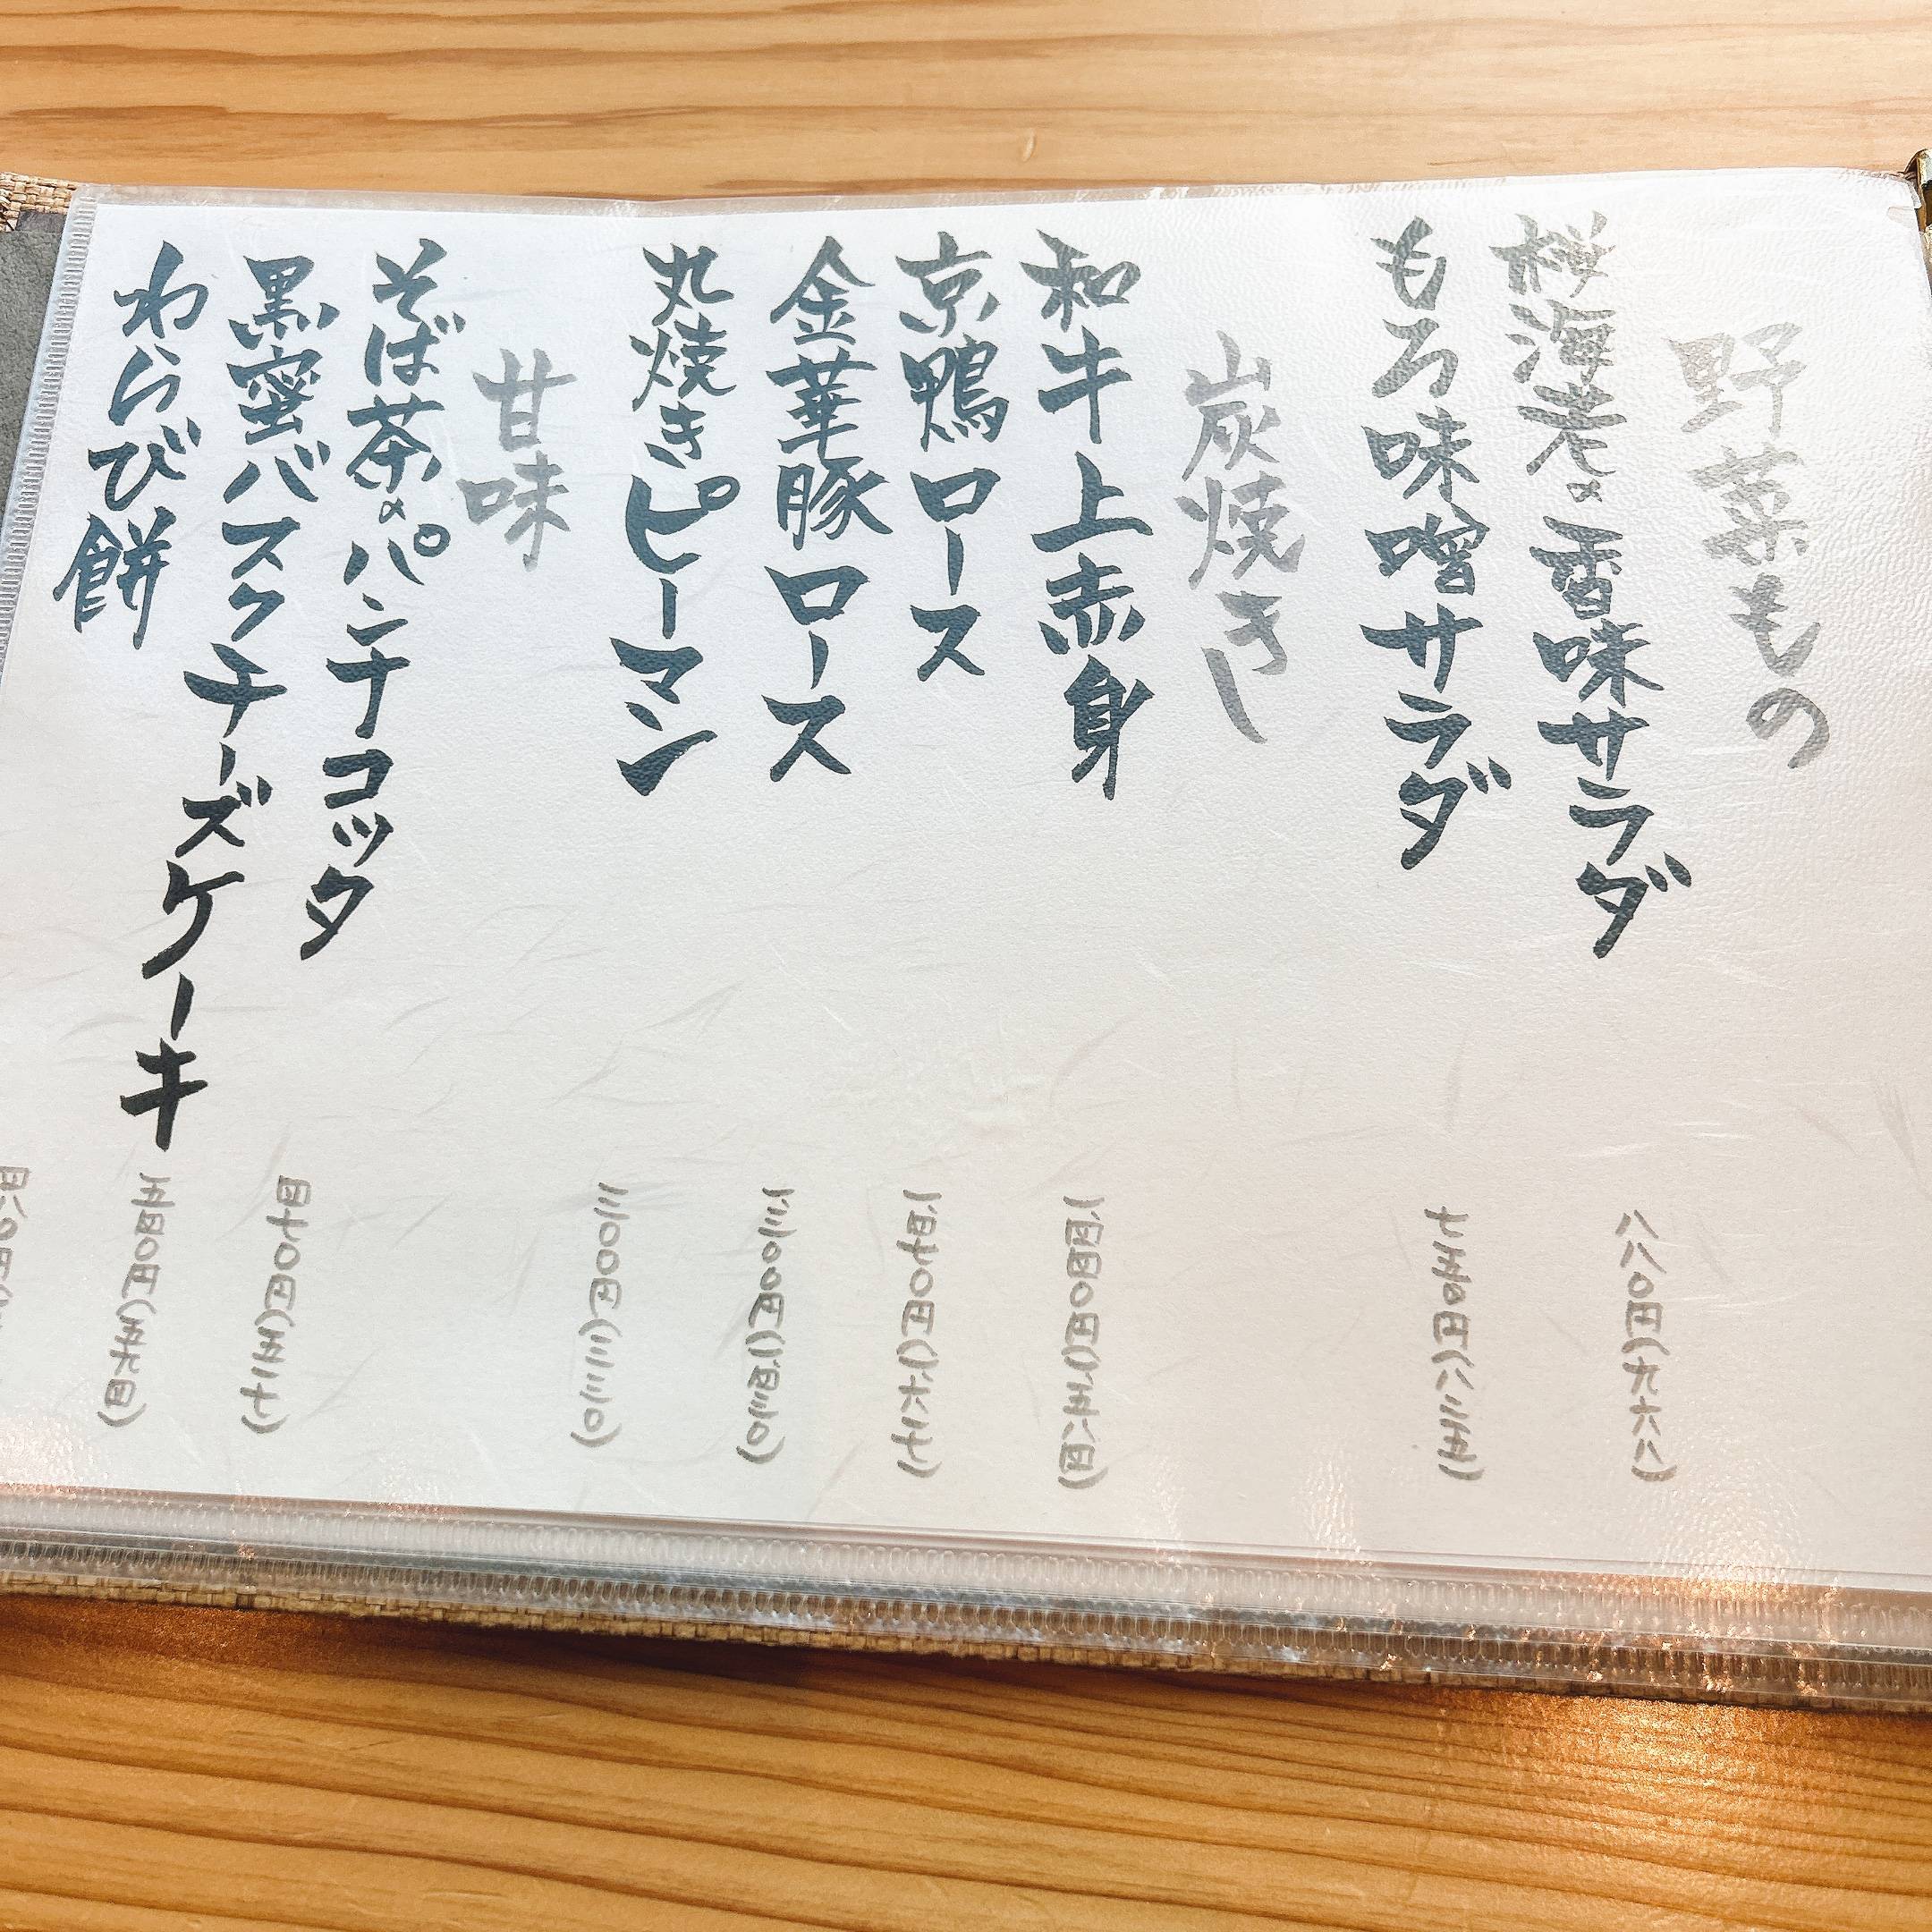 野菜もの
桜海老の香味サラダ 八八〇円(九六八)
もろ味噌サラダ 七五〇円(八二五)
炭焼きし
和牛上赤身 一四四〇円(一五八四)
京鴨ロース 一四七〇円(一六一七)
金華豚ロース 一三〇〇円(一四三〇)
丸焼きピーマン 三〇〇円(三三〇)
甘味
そば茶のパンナコッタ 四七〇円(五一七)
黒蜜バスクチーズケーキ 五四〇円(五九四)
わらび餅